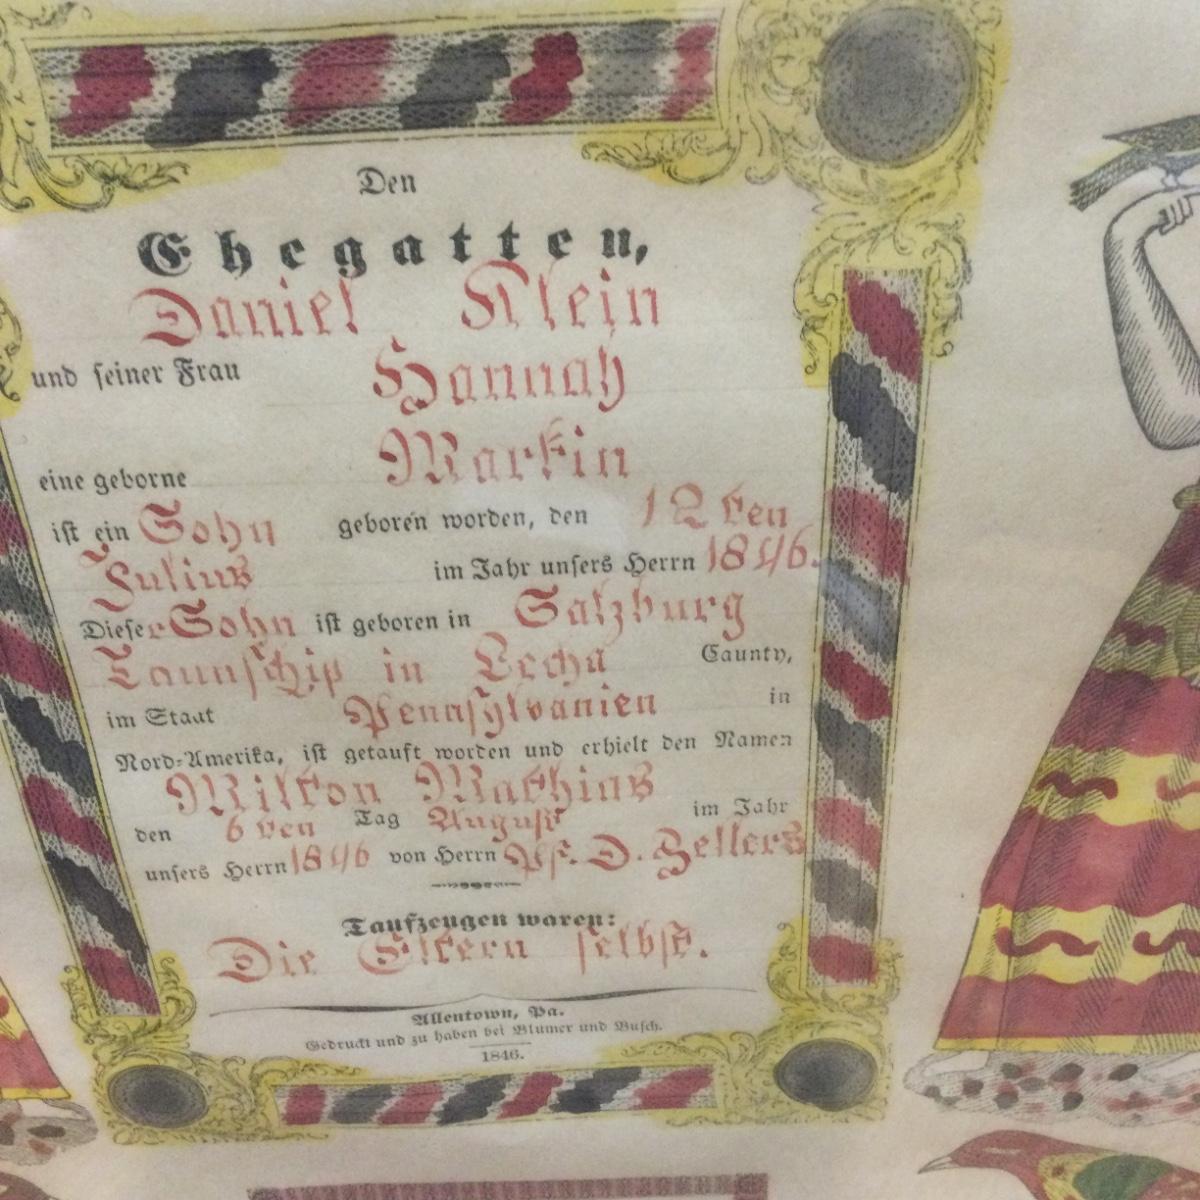 Den
Ehegatten,
Daniel Klein
und seiner Frau Hannah
eine geborne Markin
ist ein Sohn geboren worden, den 12ten
Julius im Jahr unsers Herrn 1846.
Dieser Sohn ist geboren in Salzburg
Taunschip in Lecha Caunty,
im Staat Pennsylvanien in
Nord-Amerika, ist getauft worden und erhielt den Namen
Milton Mathias
den 6ten Tag August im Jahr
unsers Herrn 1846 von Herrn Pf. D. Zellers
Taufzeugen waren:
Die Eltern selbst.
Allentown, Pa.
Gedruckt und zu haben bei Blumer und Busch.
1846.